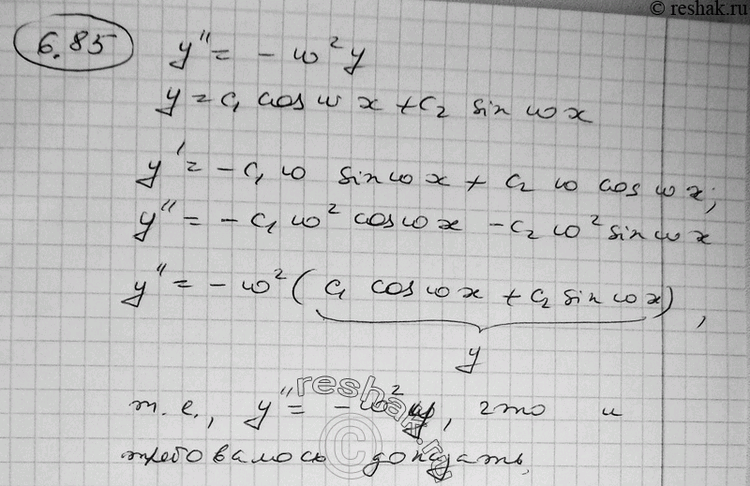 © reshak.ru
6.85 y'' = - ω² y
y = C₁ cos ω x + C₂ sin ω x
y' = - C₁ ω sin ω x + C₂ ω cos ω x;
y'' = - C₁ ω² cos ω x - C₂ ω² sin ω x
y'' = - ω² ( C₁ cos ω x + C₂ sin ω x ) ,
y
т. е., y'' = - ω² y, что и
требовалось доказать,
reshak.ru
©